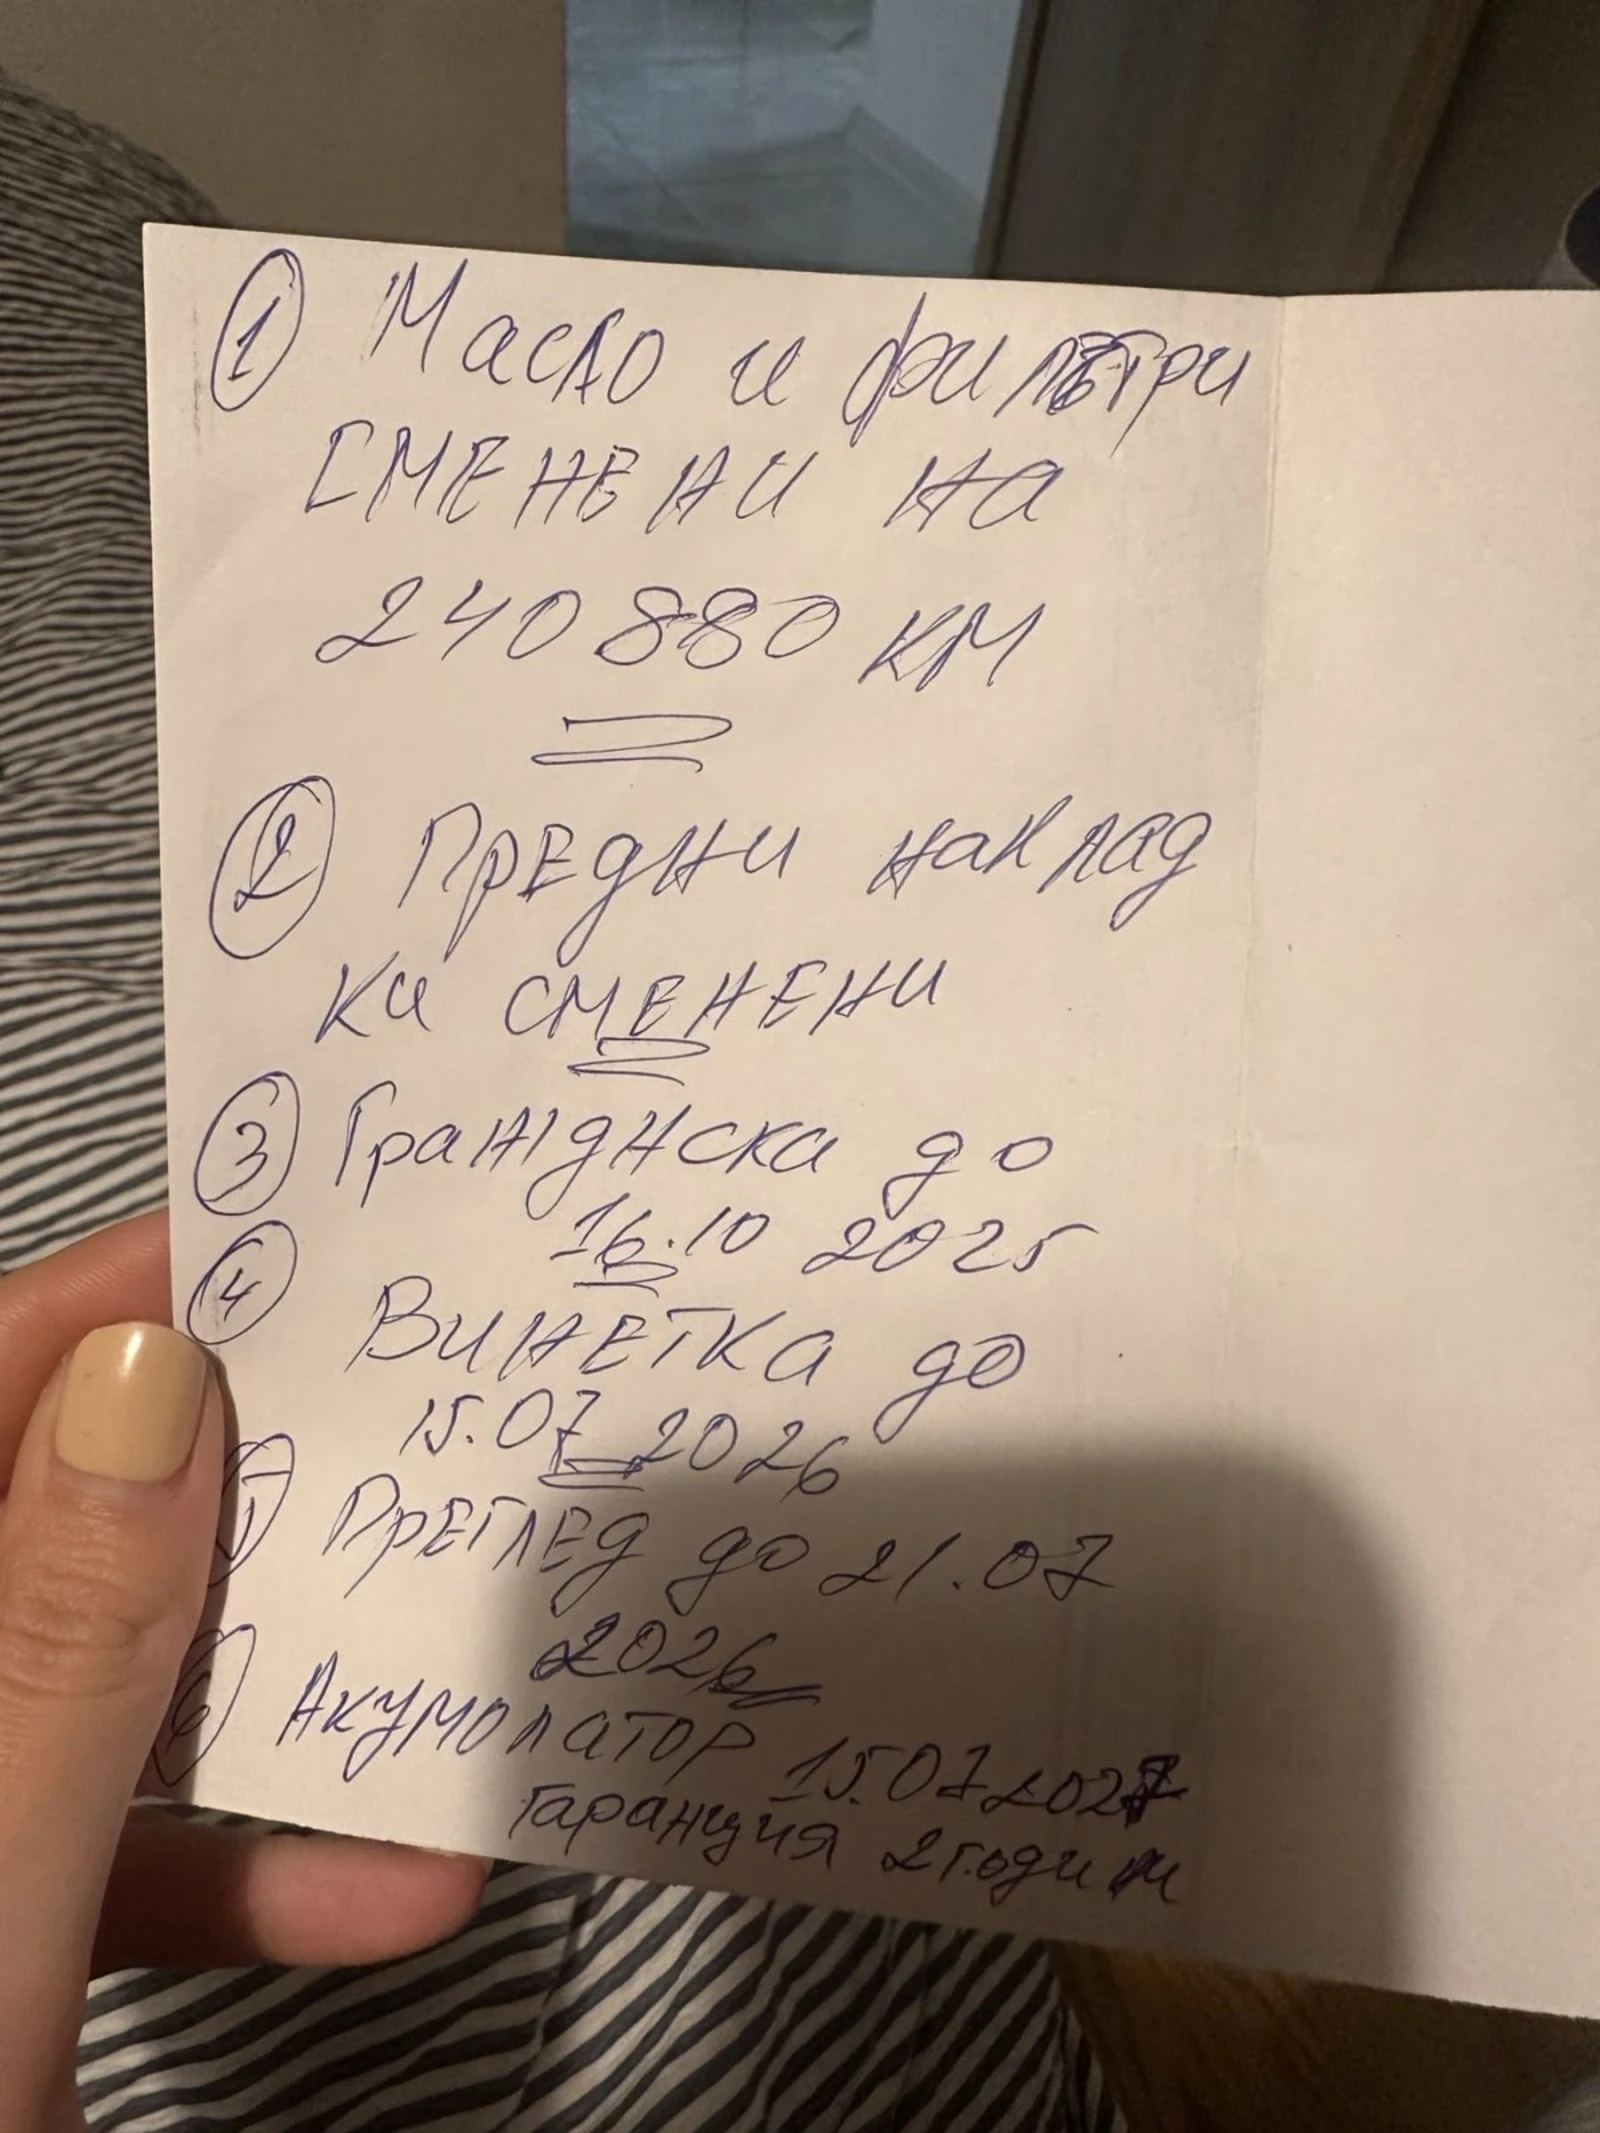 ① Масло и филътри
СМЕНЕНИ НА
240 880 КМ
② Предни наклад
ки сменени
③ Гражднска до
16.10 2025
④
Винетка до
15.07 2026
⑤ Преглед до 21.07
2026
⑥ Акумолатор 15.07 2027
Гаранция 2 години